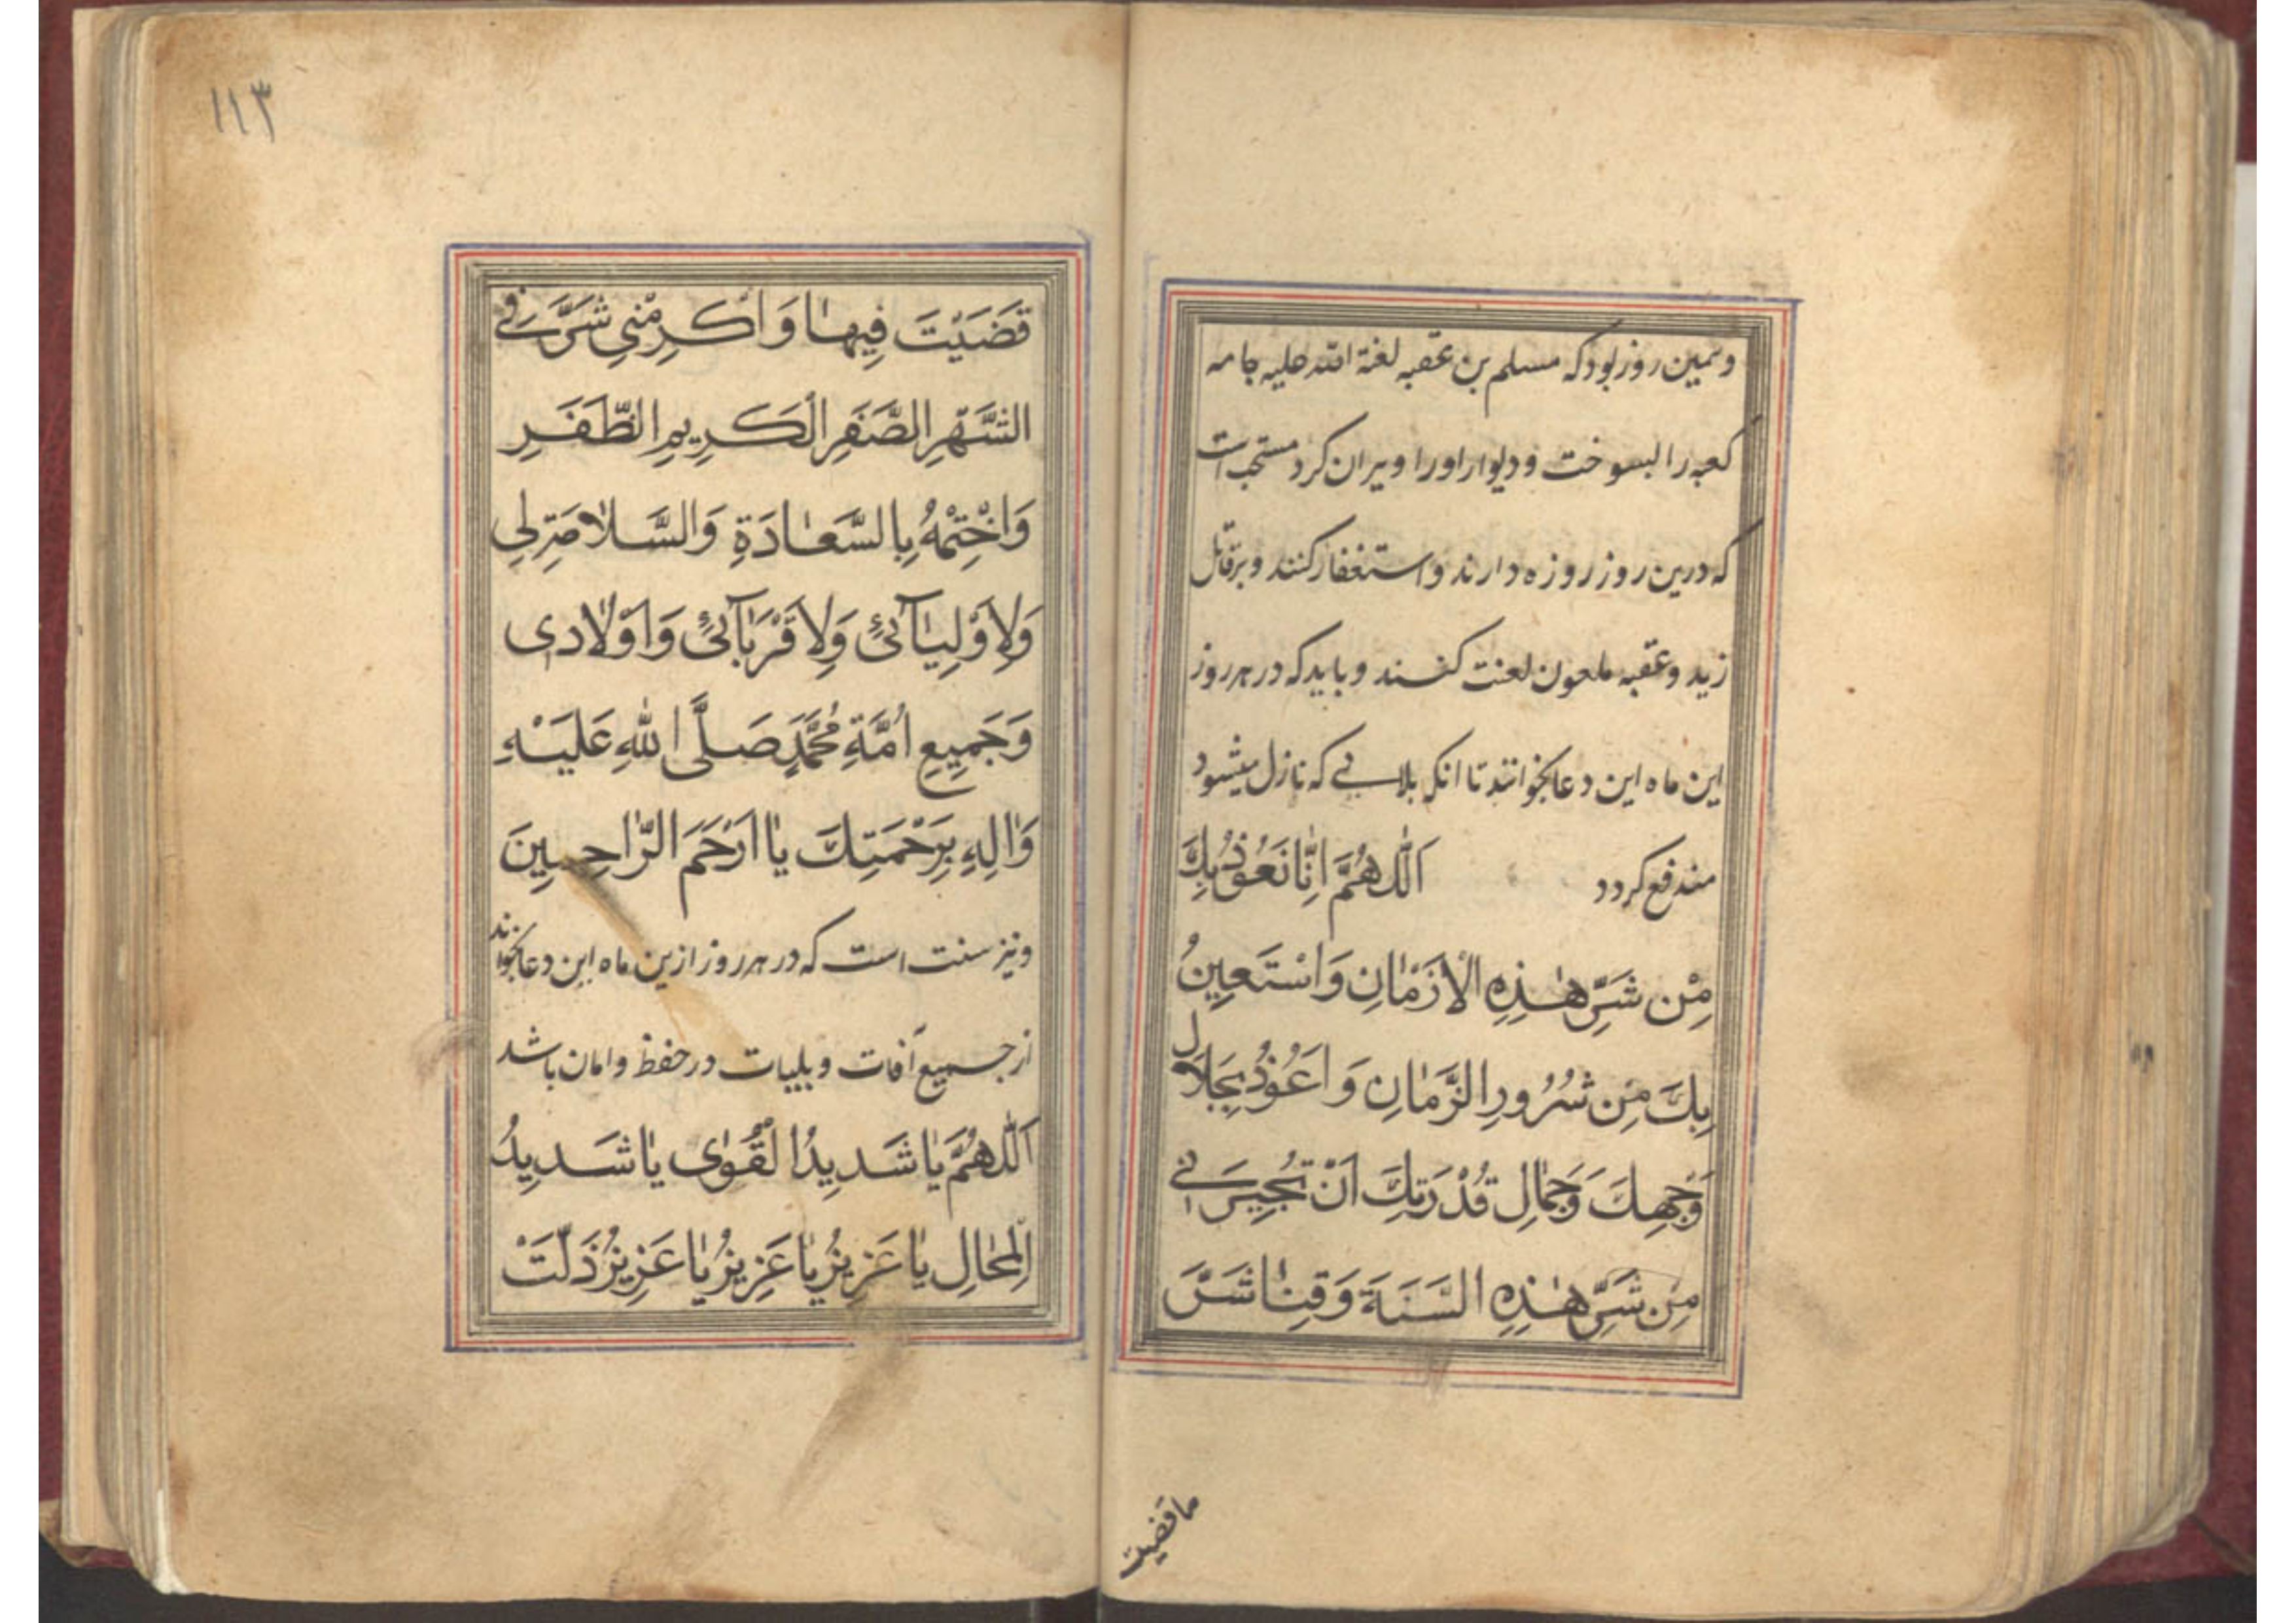 وهمین روز بود که مسلم بن عقبه لعنة الله علیه جامه
کعبه را بسوخت و دیوار اورا ویران کرد مستحب است
که درین روز روزه دارند و استغفار کنند و بر قاتل
زید و عقبه ملعون لعنت کنند و باید که در هر روز
این ماه این دعا بخوانند تا آنکه بلائی که نازل میشود
مندفع کردد اَللّٰهُمَّ اِنَّا نَعُوْذُ بِكَ
مِنْ شَرِّ هٰذِهِ الْاَزْمٰانِ وَاسْتَعِينُ
بِكَ مِن شُرُورِ الزَّمٰانِ وَ اَعُوْذُ بِجَلَالِ
وَجْهِكَ وَجَمٰالِ قُدْرَتِكَ اَنْ تُجِيرَنِي
مِن شَرِّ هٰذِهِ السَّنَةِ وَقِنٰا شَرَّ
ماقضیت
١١٣
قَضَيْتَ فِيهٰا وَ اَكْرِمْنِي شَرَّ فِي
الشَّهْرِ الصَّفَرِ الْكَرِيمِ الظَّفَرِ
وَاخْتِمْهُ بِالسَّعٰادَةِ وَالسَّلٰامَةِ لِي
وَلِاَوْلِيٰآئِي وَلِاَقْرَبٰآئِي وَاَوْلٰادِی
وَجَمِيعِ اُمَّةِ مُحَمَّدٍ صَلَّى اللهِ عَلَيْهِ
وَاٰلِهِ بِرَحْمَتِكَ يٰا اَرْحَمَ الرّٰاحِمِينَ
ونیز سنت است که در هر روز ازین ماه این دعا بخوانند
از جمیع آفات و بلیات در حفظ و امان باشد
اَللّٰهُمَّ يٰا شَدِيدُ الْقُوٰى يٰا شَدِيدُ
الْمِحٰالِ يٰا عَزِيزُ يٰا عَزِيزُ يٰا عَزِيزُ ذَلَّتْ